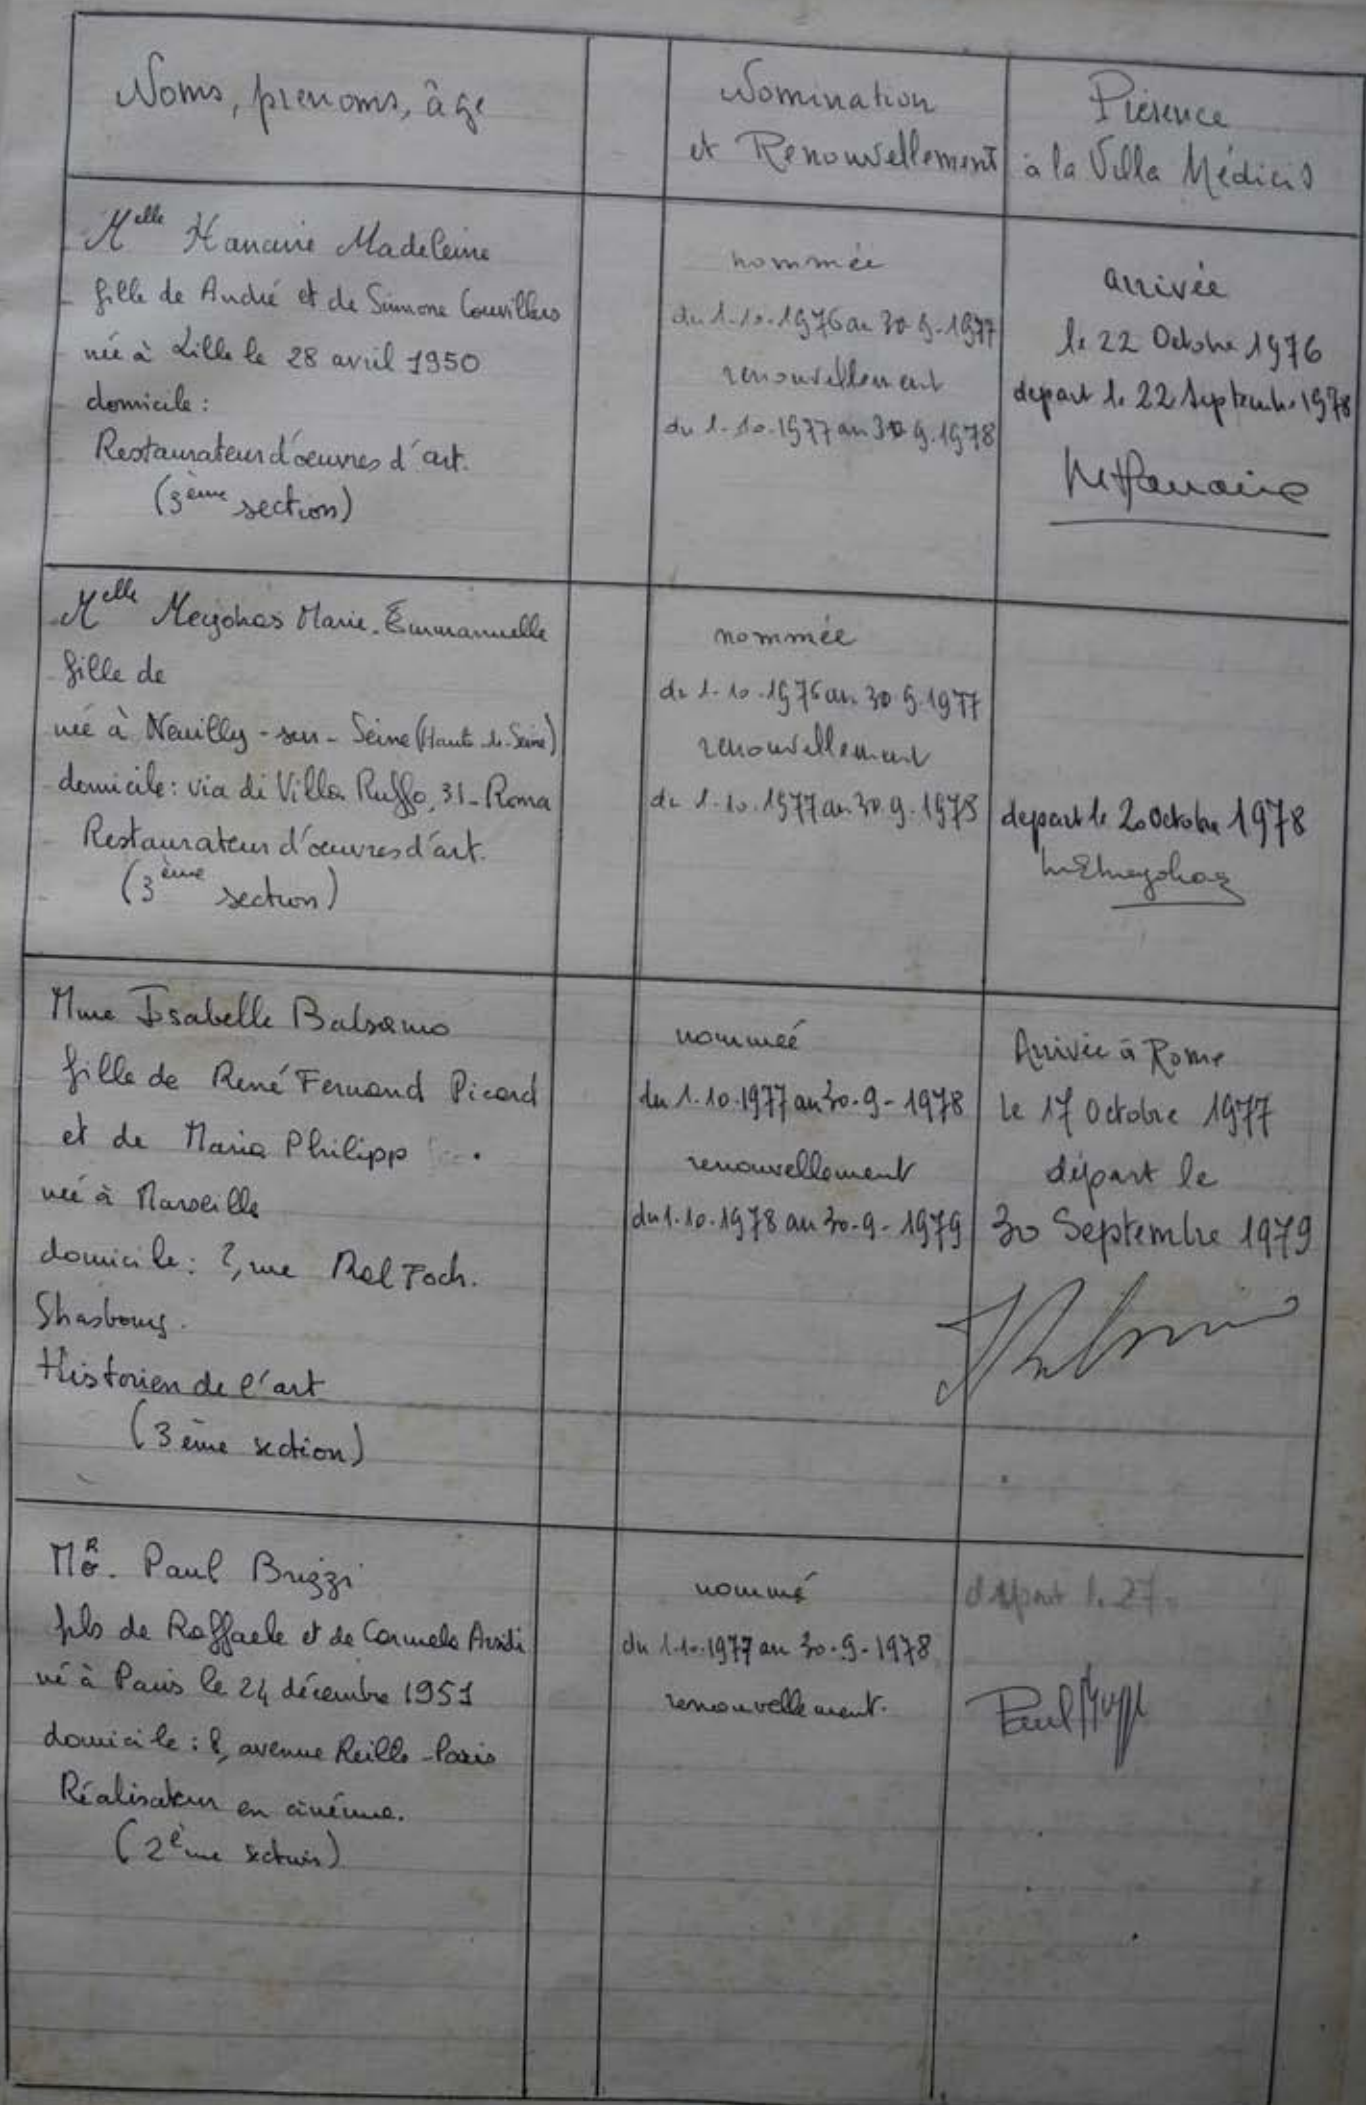 Noms, prenoms, âge
Nomination
et Renouvellement
Présence
à la Villa Médicis
Melle Hanaire Madeleine
fille de André et de Simone
née à Lille le 28 avril 1950
domicile:
Restaurateur d'oeuvres d'art.
(3ème section)
nommée
du 1.10.1976 au 30.9.1977
renouvellement
du 1.10.1977 au 30.9.1978
arrivée
le 22 Octobre 1976
depart le 22 Septembre 1978
MHanaire
Melle Meyohas Marie-Emmanuelle
fille de
née à Neuilly-sur-Seine (Hauts-de-Seine)
domicile: via di Villa Ruffo, 31-Roma
Restaurateur d'oeuvres d'art.
(3ème section)
nommée
du 1.10.1976 au 30.9.1977
renouvellement
du 1.10.1977 au 30.9.1978
depart le 20 Octobre 1978
MEMeyohas
Mme Isabelle Balsamo
fille de René Fernand Picard
et de Maria Philipp
née à Marseille
domicile: ?, rue Mal Foch.
Strasbourg.
Historien de l'art
(3ème section)
nommée
du 1.10.1977 au 30-9-1978
renouvellement
du 1.10.1978 au 30-9-1979
Arrivée à Rome
le 17 Octobre 1977
départ le
30 Septembre 1979
MR. Paul Brizzi
fils de Raffaele et de Carmela
né à Paris le 24 décembre 1951
domicile: 8, avenue Reille-Paris
Réalisateur en cinéma.
(2ème section)
nommé
du 1.10.1977 au 30-9-1978
renouvellement.
départ le 27
Paul Brizzi